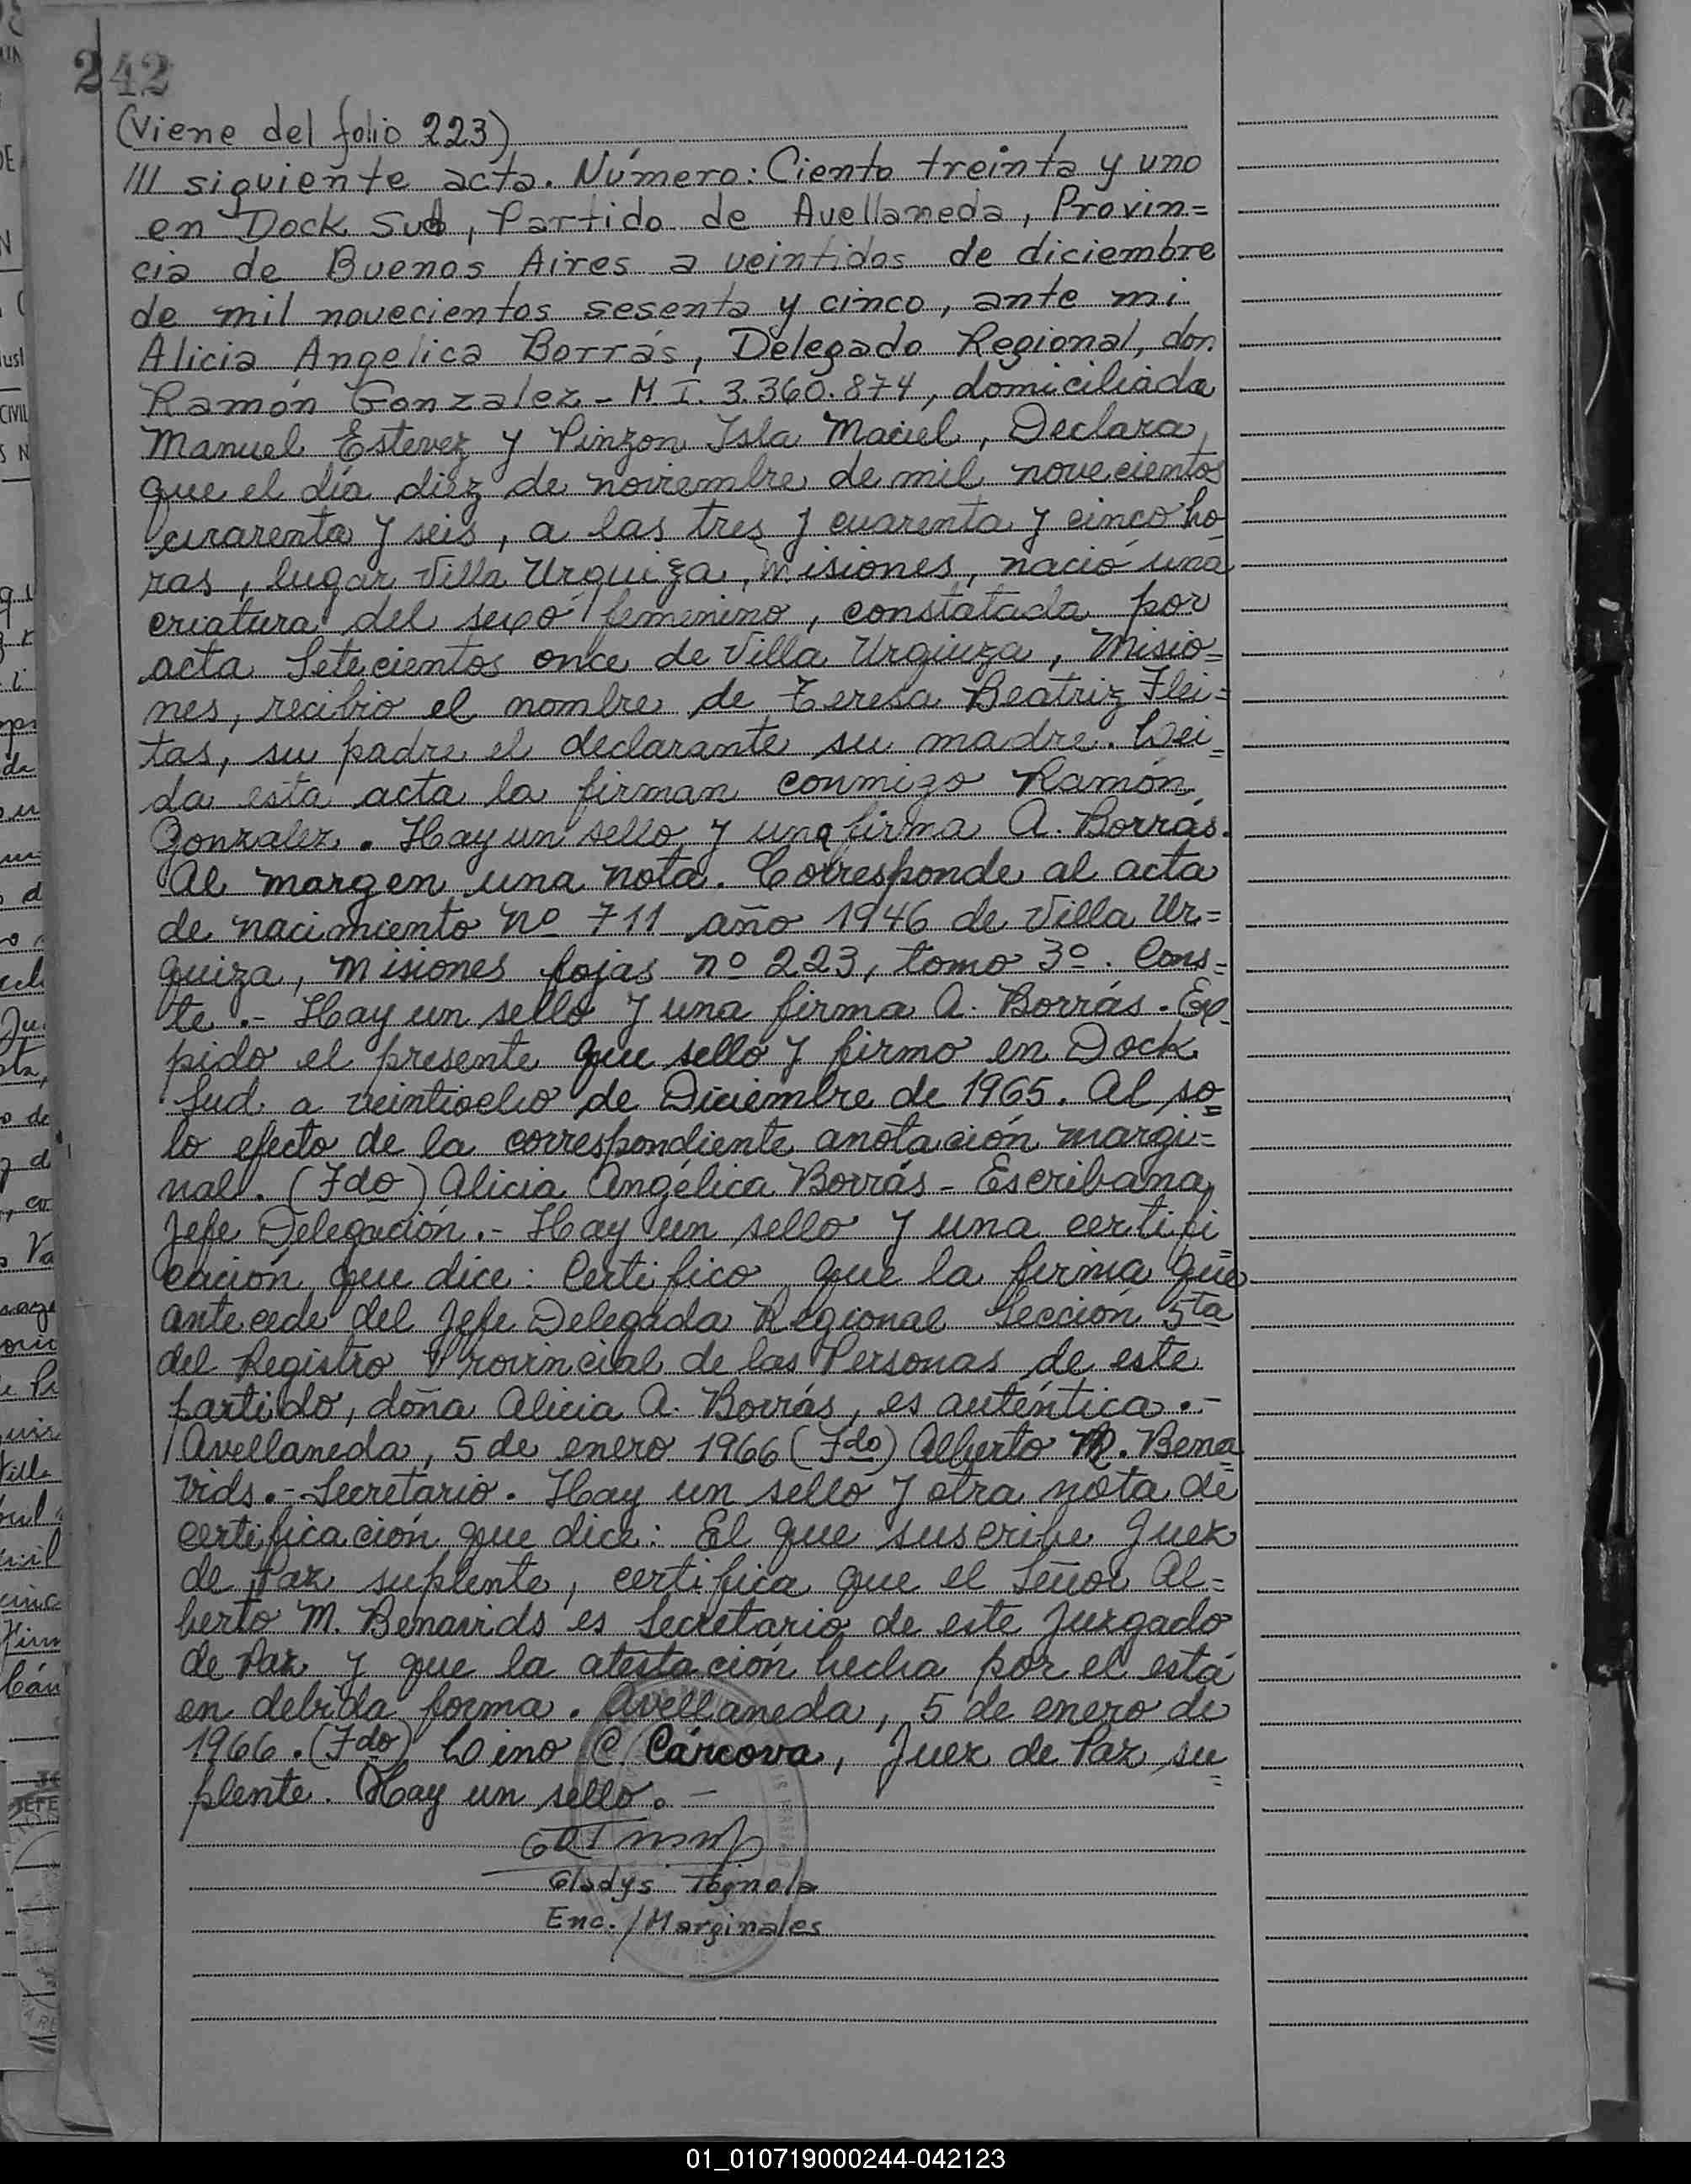 242
(Viene del folio 223)
/// siguiente acta. Número: Ciento treinta y uno
en Dock Sud, Partido de Avellaneda, Provin=
cia de Buenos Aires a veintidos de diciembre
de mil novecientos sesenta y cinco, ante mi
Alicia Angelica Borrás, Delegado Regional, don
Ramón Gonzalez - M.I. 3.360.874, domiciliada
Manuel Estevez y Pinzon Isla Maciel, Declara
que el día diez de noviembre de mil novecientos
cuarenta y seis, a las tres y cuarenta y cinco ho
ras, lugar Villa Urquiza, Misiones, nació una
criatura del sexo femenino, constatada por
acta Setecientos once de Villa Urquiza, Misio=
nes, recibio el nombre de Teresa Beatriz Flei=
tas, su padre el declarante su madre. Lei=
da esta acta la firman conmigo Ramón
Gonzalez. Hay un sello y una firma A. Borrás.
Al margen una nota. Corresponde al acta
de nacimiento nº 711 año 1946 de Villa Ur=
quiza, Misiones fojas nº 223, tomo 3º. Cons=
te.- Hay un sello y una firma A. Borrás. Ex
pido el presente que sello y firmo en Dock
Sud a veintiocho de Diciembre de 1965. Al so=
lo efecto de la correspondiente anotación margi=
nal. (Fdo) Alicia Angélica Borrás - Escribana
Jefe Delegación.- Hay un sello y una certifi=
cación que dice: Certifico que la firma que
antecede del Jefe Delegada Regional Sección 5ta
del Registro Provincial de las Personas de este
partido, doña Alicia A. Borrás, es auténtica.-
Avellaneda, 5 de enero 1966 (Fdo) Alberto M. Bena=
vids.- Secretario. Hay un sello y otra nota de
certificación que dice: El que suscribe Juez
de Paz suplente, certifica que el Señor Al=
berto M. Benavids es Secretario de este Juzgado
de Paz y que la atestación hecha por el está
en debida forma. Avellaneda, 5 de enero de
1966. (Fdo) Lino C Cárcova, Juez de Paz su=
plente. Hay un sello. -
Gladys Tognola
Enc./Marginales
01_010719000244-042123